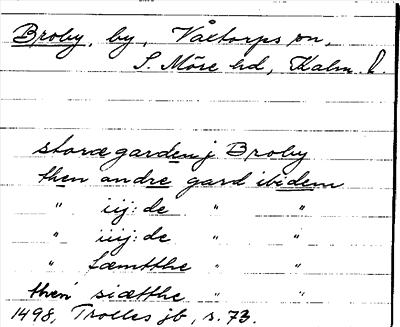 Broby, by, Våxtorps sn,
S. Möre hd, Kalm. l.
storægarden j Broby
then andre gard ibidem
" iij:de " "
" iiij:de " "
" fæmtthe " "
then siætthe " "
1498, Trolles jb, s. 73.